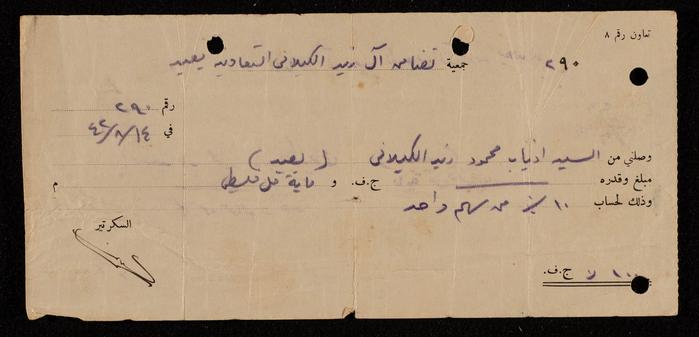 تعاون رقم ٨
٢٩٠ جمعية تضامن آل زيد الكيلاني التعاونية يعبد
رقم ٢٩٠
في ١٤/٨/٤٢
وصلني من السيد اذياب محمود زيد الكيلاني (يعبد)
مبلغ وقدره ج.ف. و ماية مل فلسطيني م
وذلك لحساب ١٠٪ من سهم واحد
السكرتير
١٠٠ ج.ف.